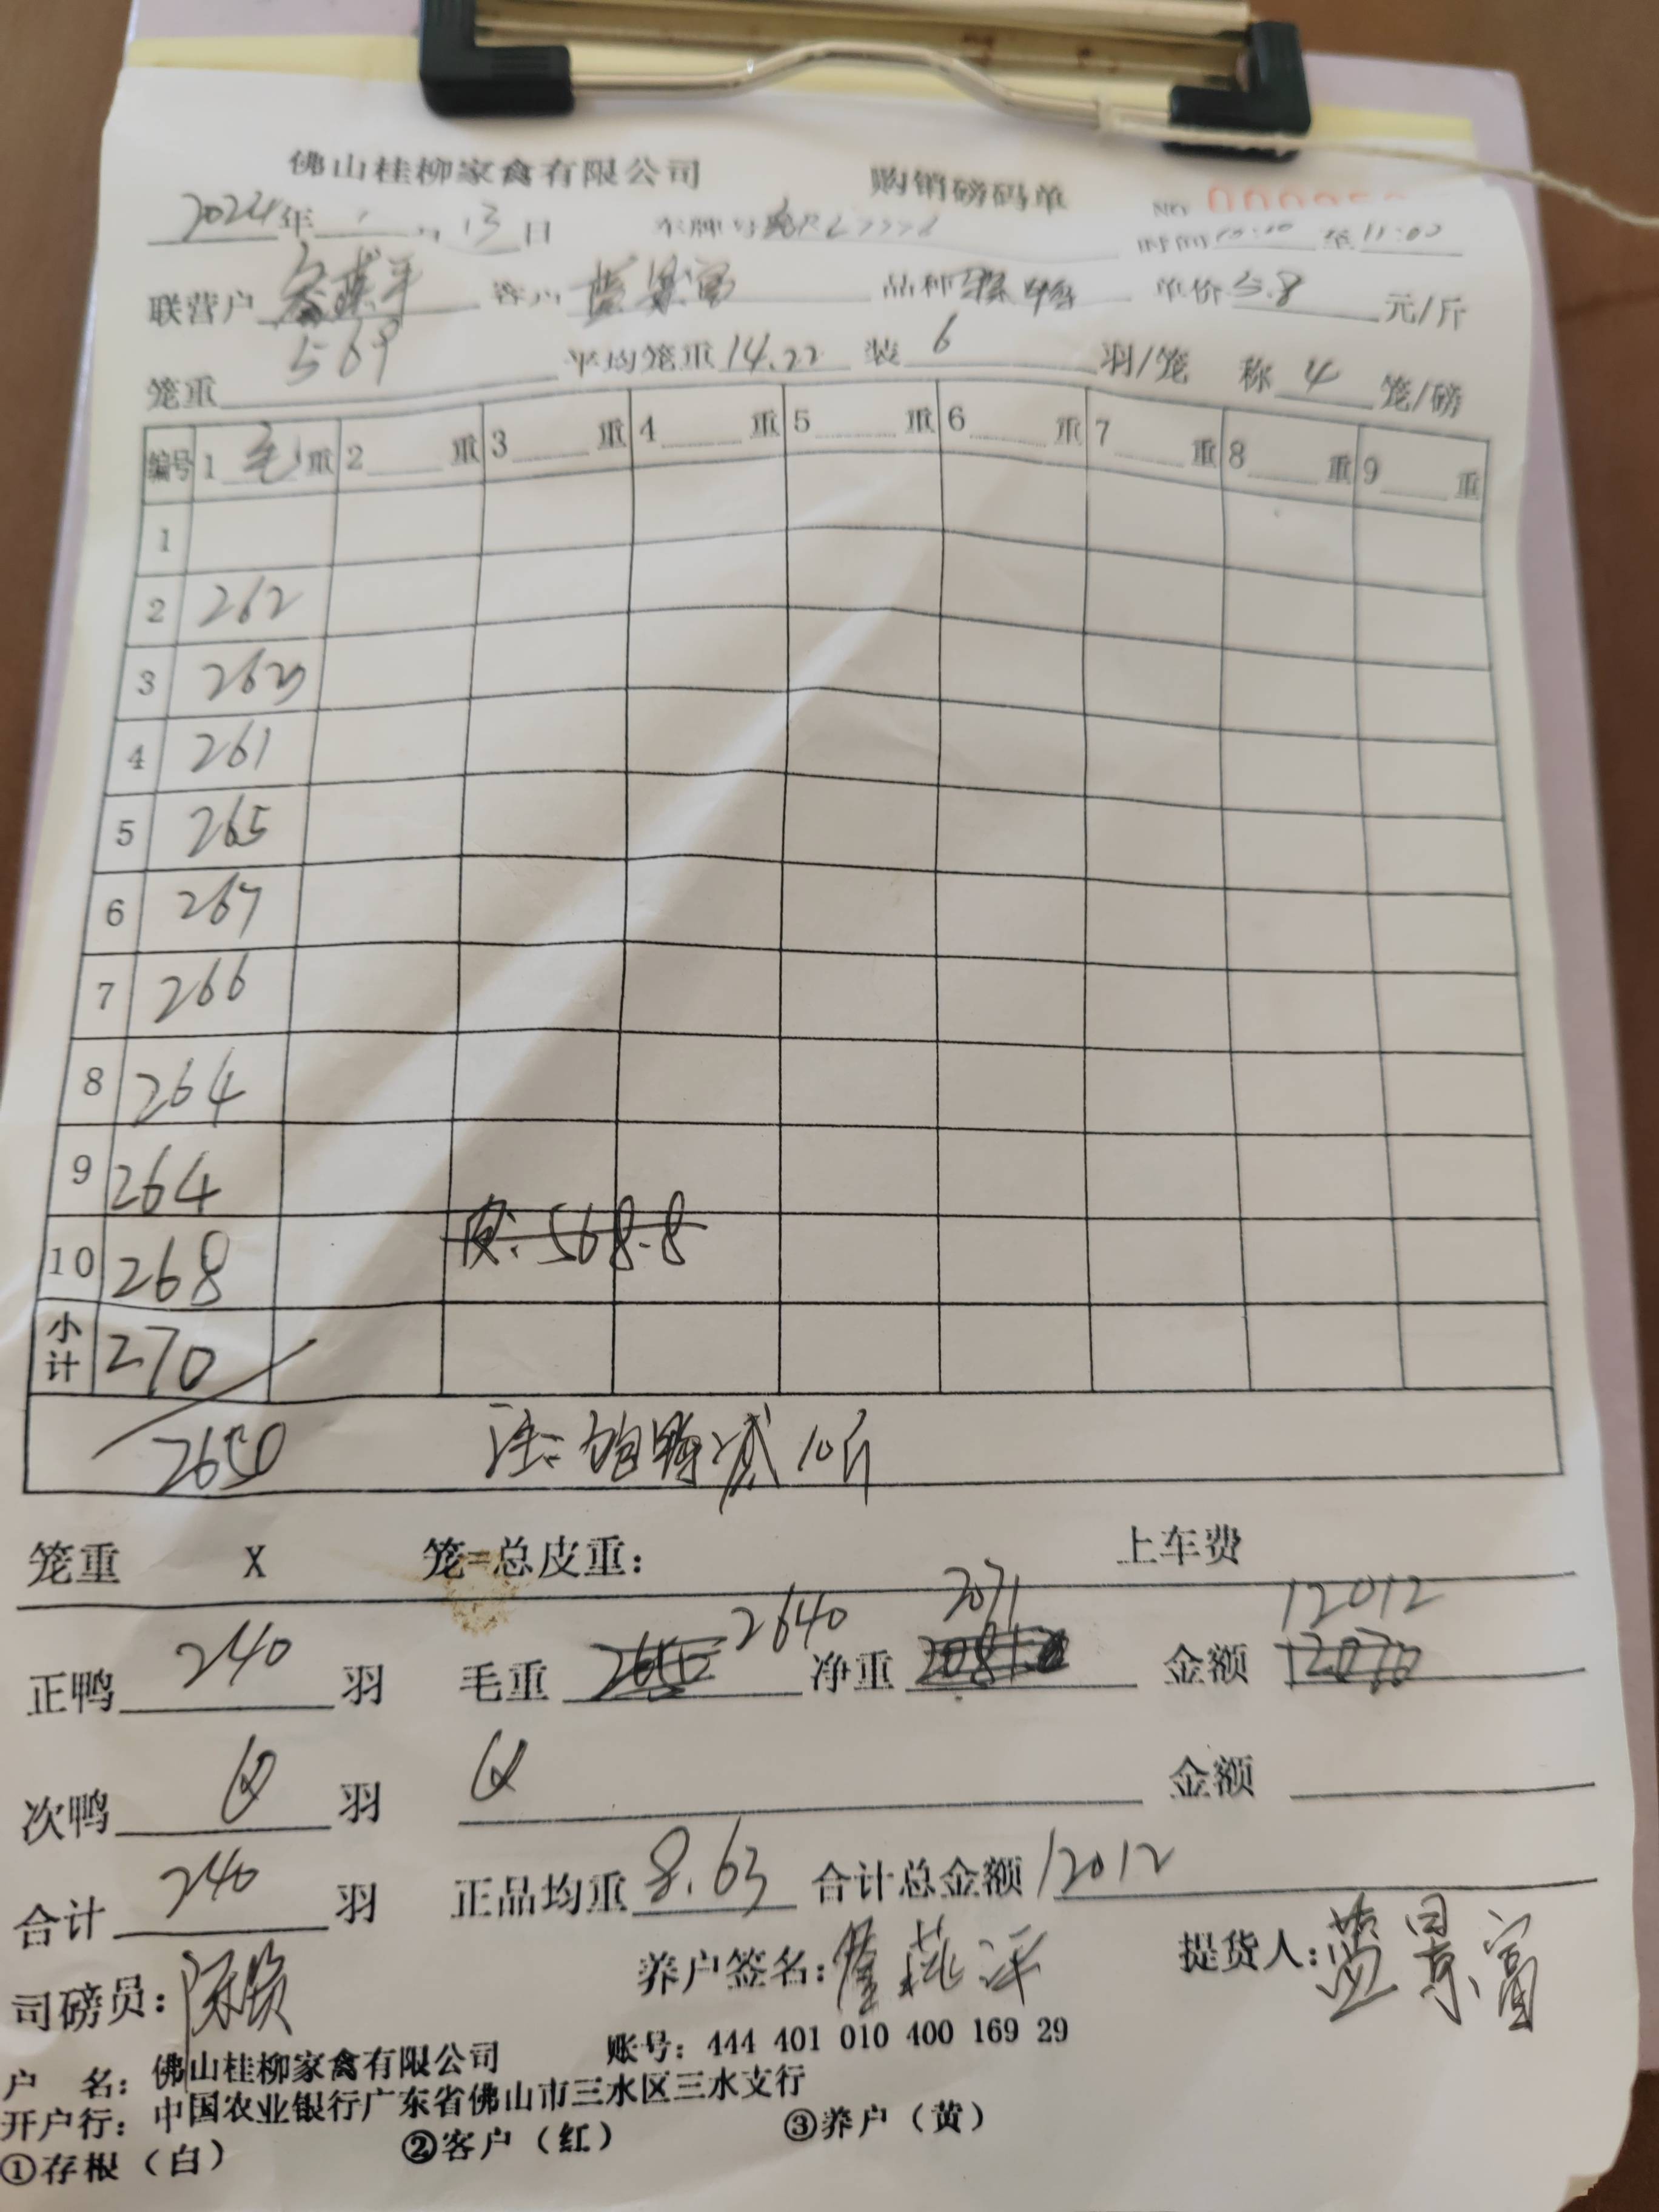 佛山桂柳家禽有限公司 购销磅码单 NO
2024年 13日 车牌号 时间10:20 至11:00
联营户 客户蓝景富 品种 单价5.8元/斤
笼重569 平均笼重14.22 装6羽/笼 称4笼/磅
编号 1毛重 2 重 3 重 4 重 5 重 6 重 7 重 8 重 9 重
1
2 262
3 263
4 261
5 265
6 267
7 266
8 264
9 264
10 268 皮:568.8
小计 270
2650 注: 减10斤
笼重 X 笼=总皮重: 上车费
2640 2071 12012
正鸭240羽 毛重2650 净重 金额12070
次鸭0羽 0 金额
合计240羽 正品均重8.63 合计总金额12012
司磅员: 养户签名: 提货人:蓝景富
户 名:佛山桂柳家禽有限公司 账号:444 401 010 400 169 29
开户行:中国农业银行广东省佛山市三水区三水支行
①存根(白) ②客户(红) ③养户(黄)